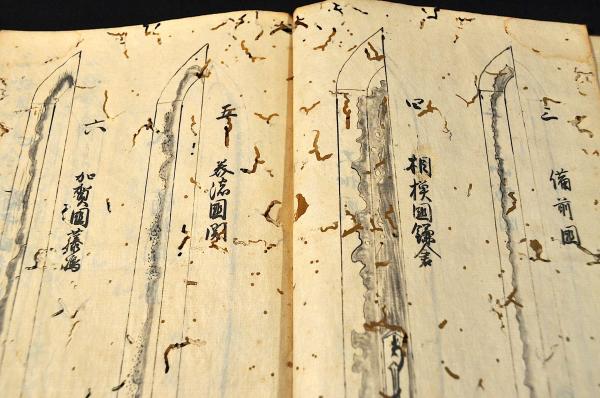 三
備前國
四
相模國鎌倉
五
美濃國関
六
加賀國藤嶋